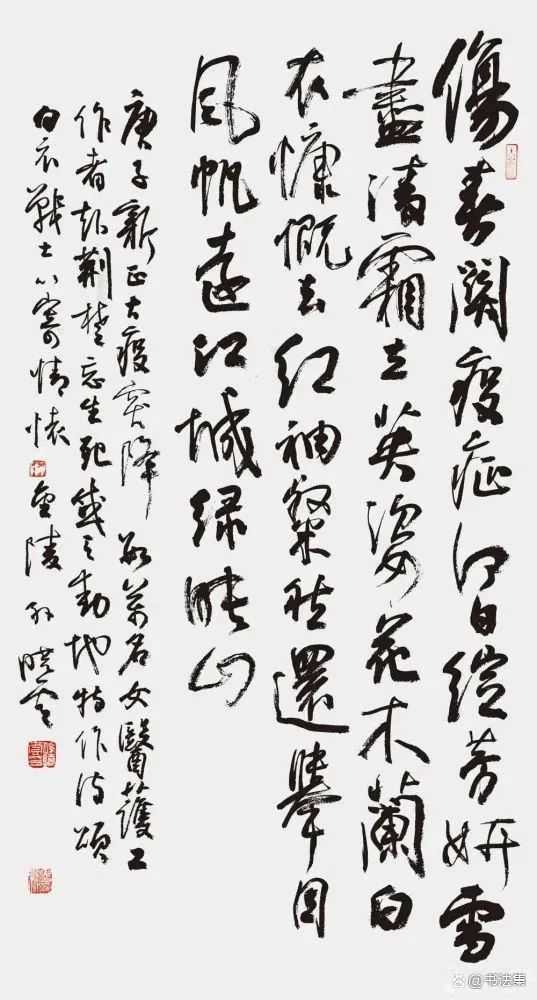 傷春關疫症何日綻芳妍雪
盡清霜立英姿花木蘭白
衣慷慨去紅袖粲然還舉目
風帆遠江城緑映山
庚子新正大疫突降數萬名女醫護工
作者赴荆楚忘生死感天動地特作诗頌
白衣戰士以寄情懷 金陵孙曉雲
@书法集